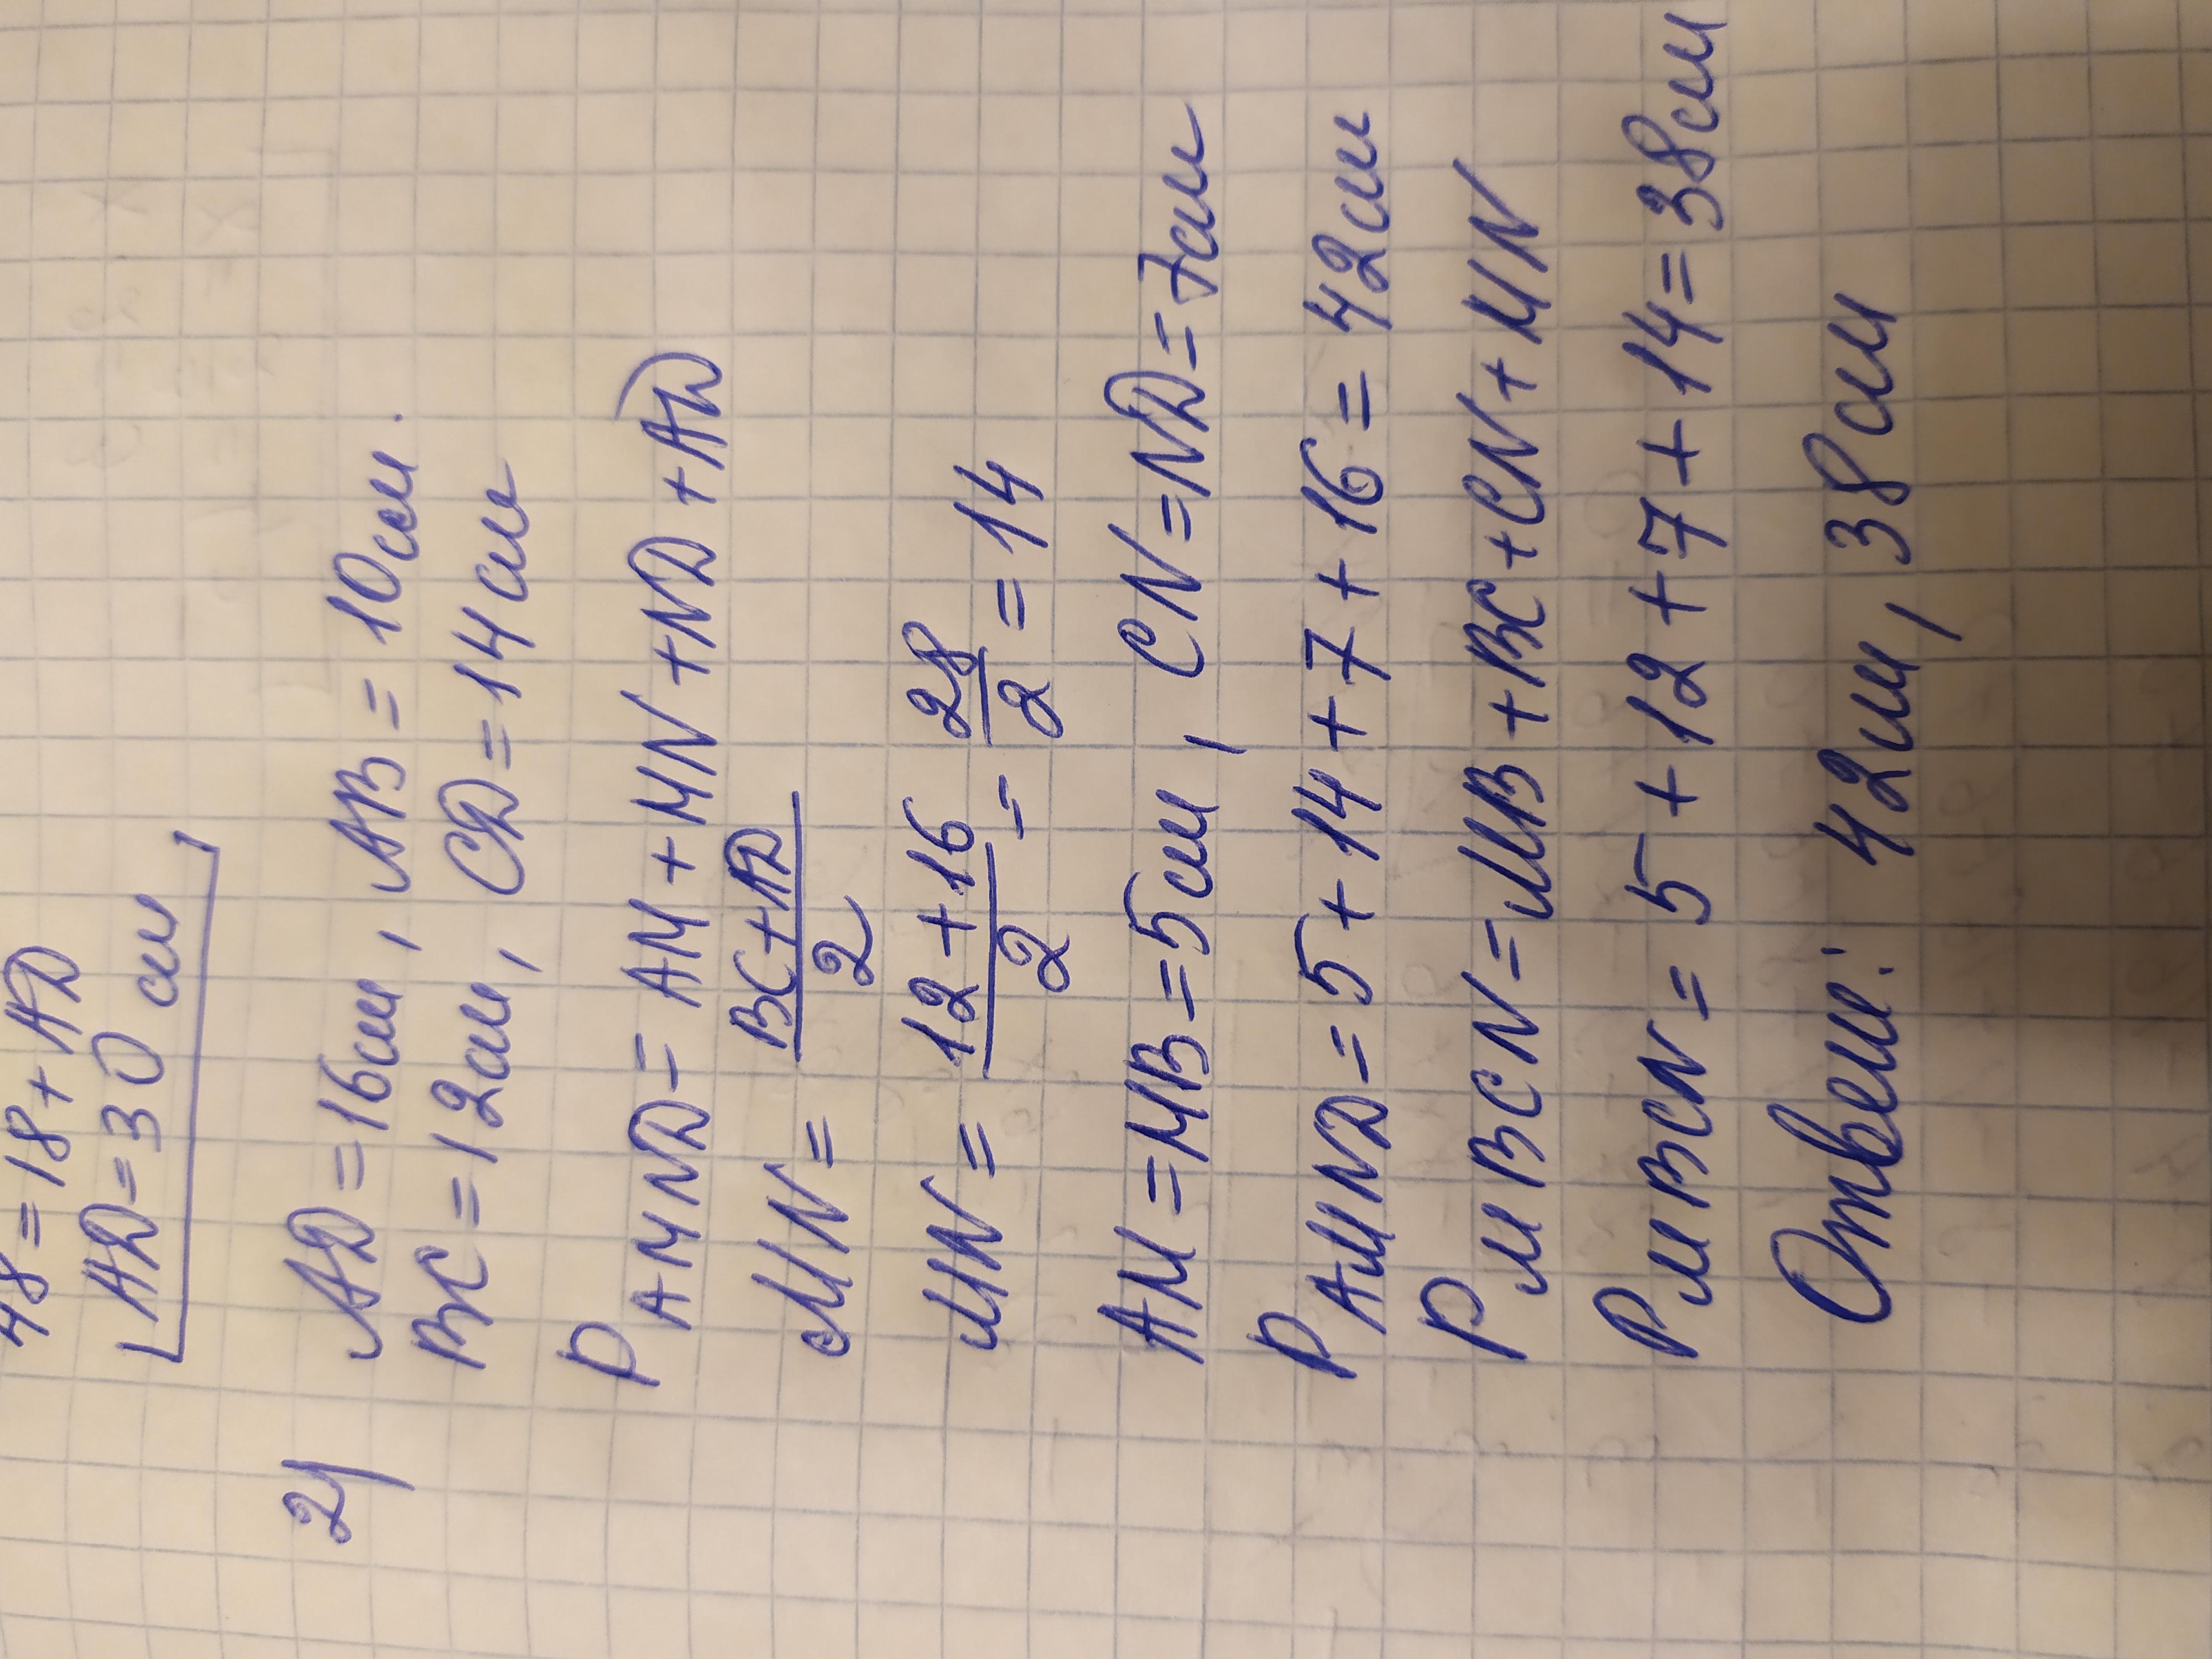 48 = 18 + AD
AD = 30 см
2) AD = 16см, AB = 10см.
BC = 12см, CD = 14см
P AMND = AM + MN + ND + AD
MN = BC + AD / 2
MN = 12 + 16 / 2 = 28 / 2 = 14
AM = MB = 5см, CN = ND = 7см
P AMND = 5 + 14 + 7 + 16 = 42см
P MBCN = MB + BC + CN + MN
P MBCN = 5 + 12 + 7 + 14 = 38см
Ответ: 42см, 38см